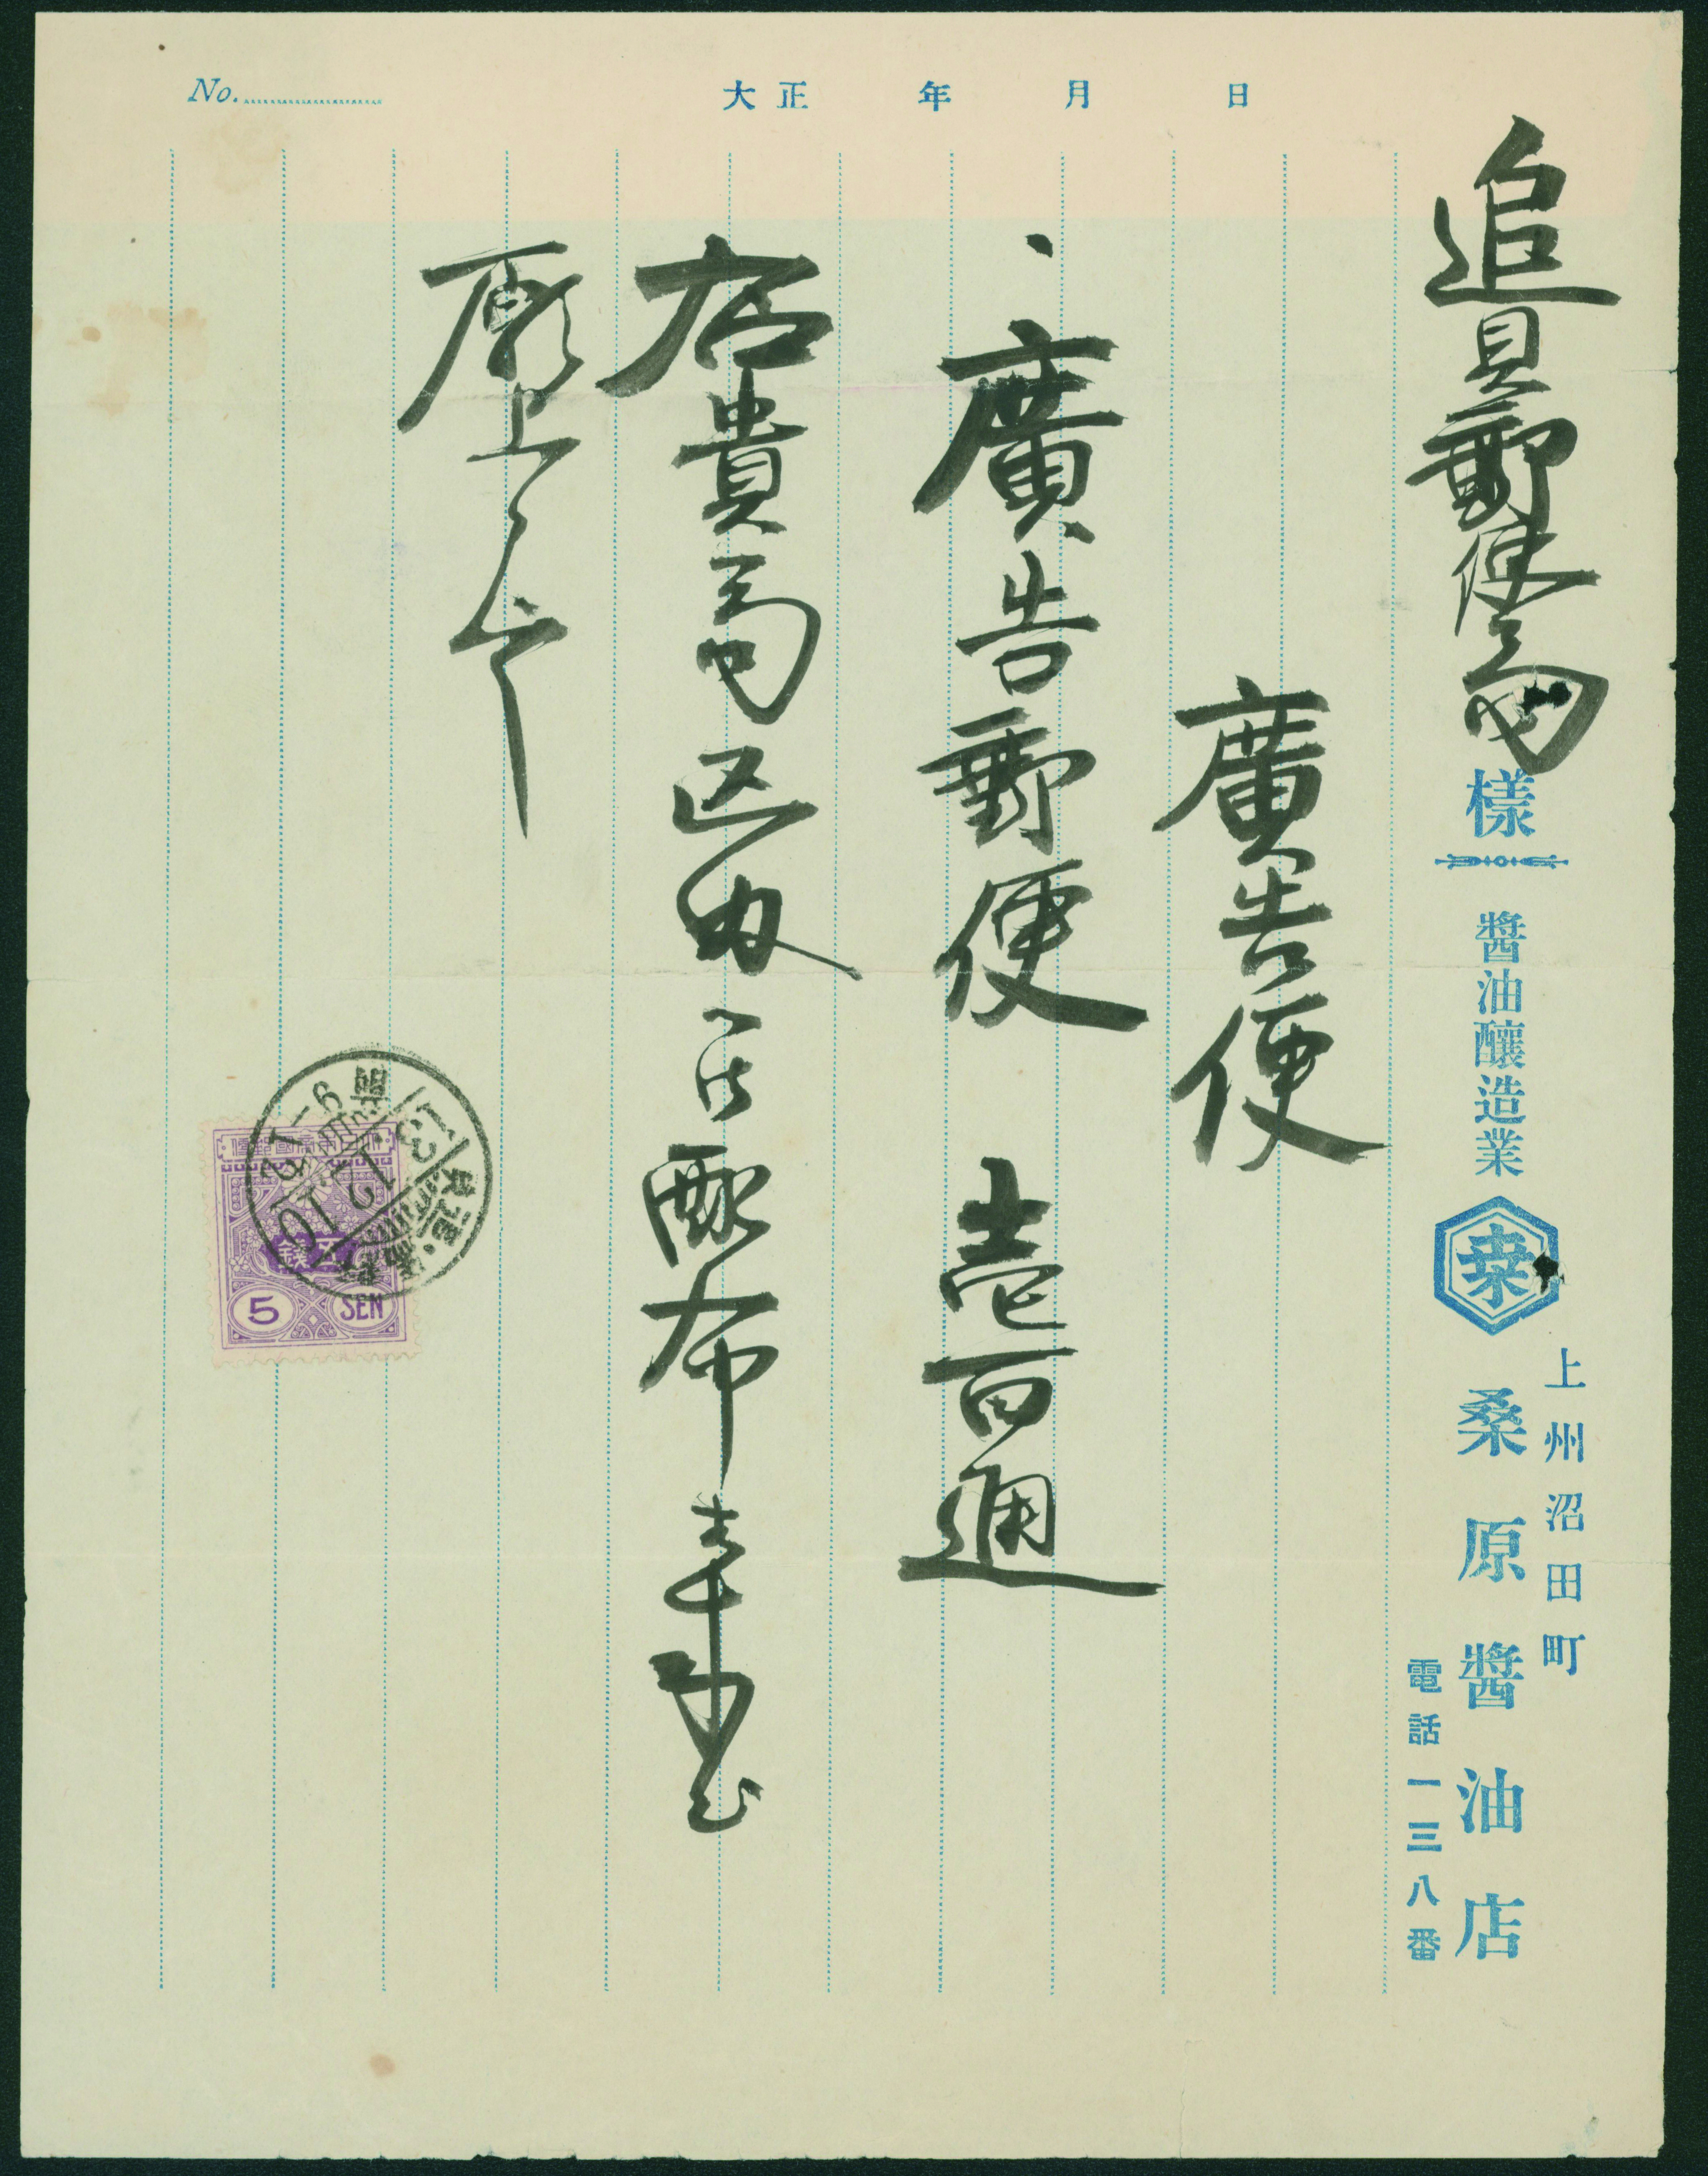 No.
大正 年 月 日
追貝郵便局
様
醬油釀造業
桒
上州沼田町
桑原醬油店
電話一三八番
廣告便
廣告郵便 壱百通
右貴局区内ニ配布
願上候
13.12.10
5 SEN
五錢